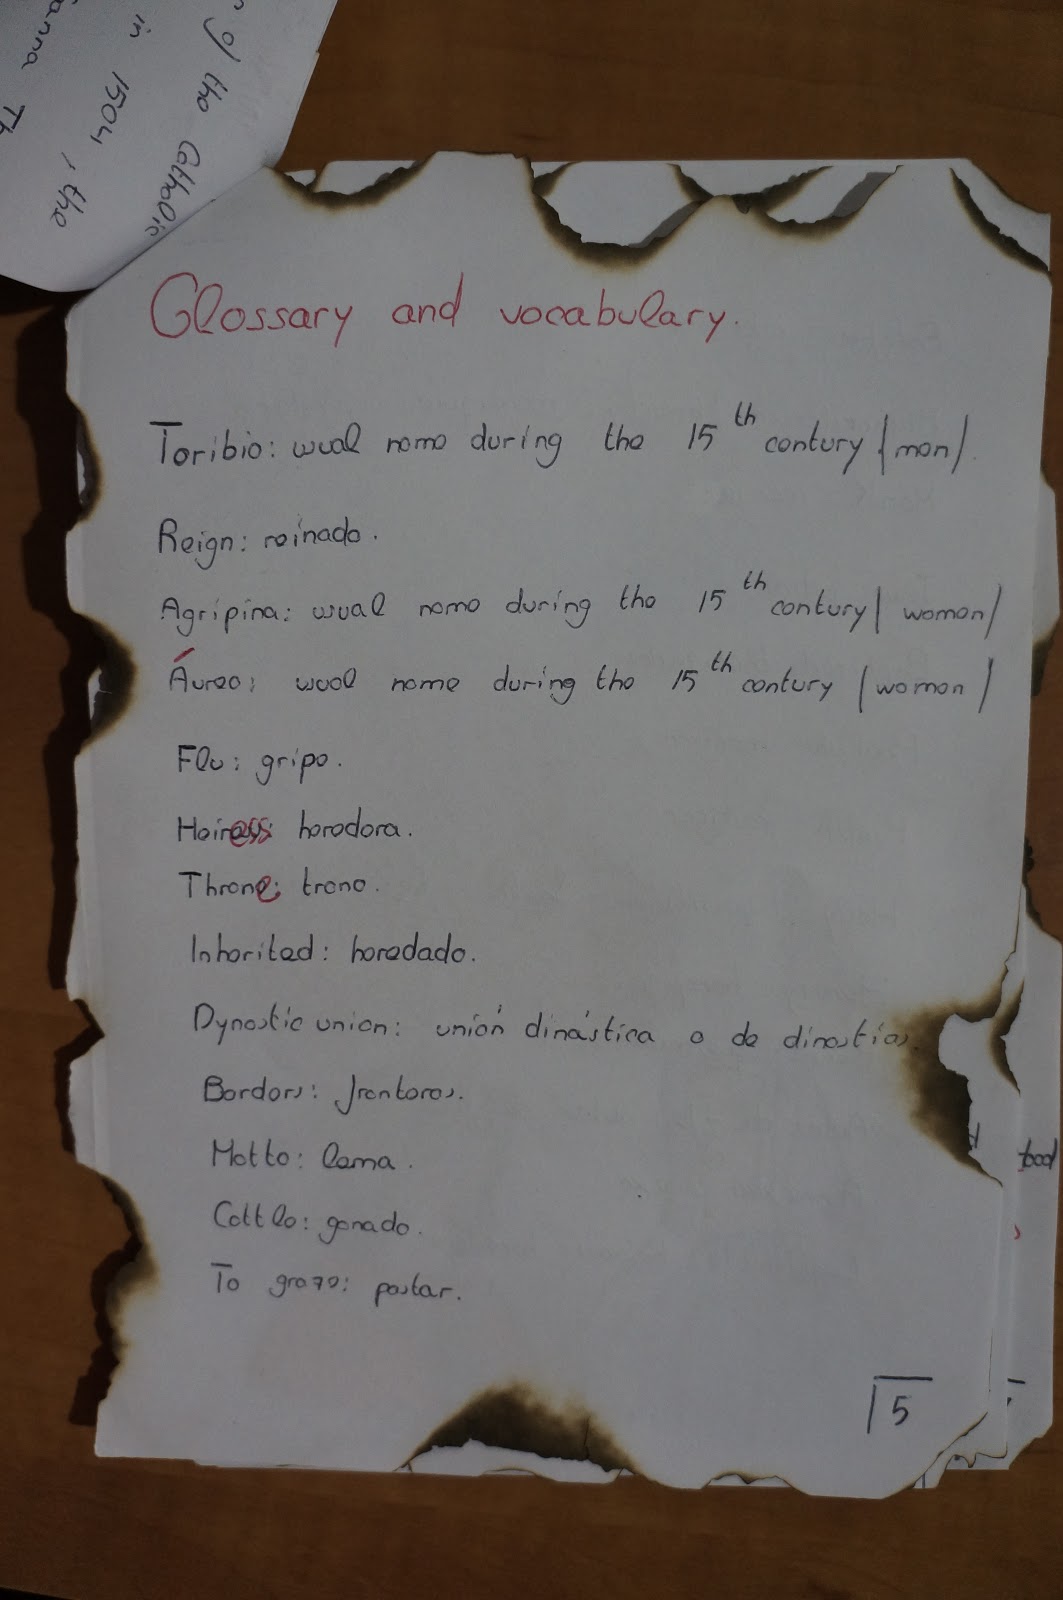 n of the Catholic
in 1504, the
anna Th
Glossary and vocabulary.
Toribio: usual name during the 15th century (man).
Reign: reinado.
Agripina: usual name during the 15th century (woman)
Áurea: usual name during the 15th century (woman)
Flu: gripe.
Heiress: heredera.
Throne: trono.
Inherited: heredado.
Dynastic union: unión dinástica o de dinastías.
Borders: fronteras.
Motto: lema.
Cattle: ganado.
To graze: pastar.
5